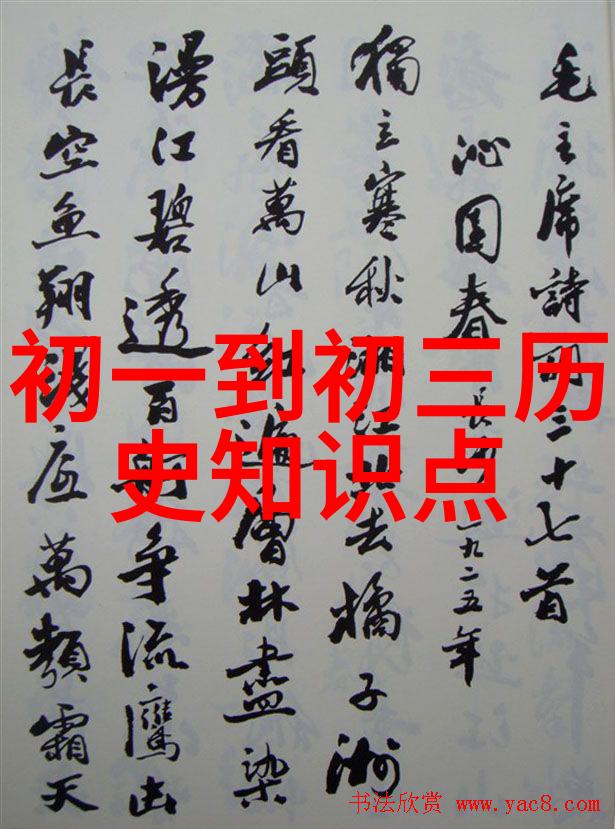 毛主席詩詞三十七首
沁園春 長沙 一九二五年
獨立寒秋湘江北去橘子洲
頭看萬山紅遍層林盡染
漫江碧透百舸爭流鷹击
長空魚翔淺底萬類霜天
初一到初三历
史知识点
书法欣赏 www.yac8.com